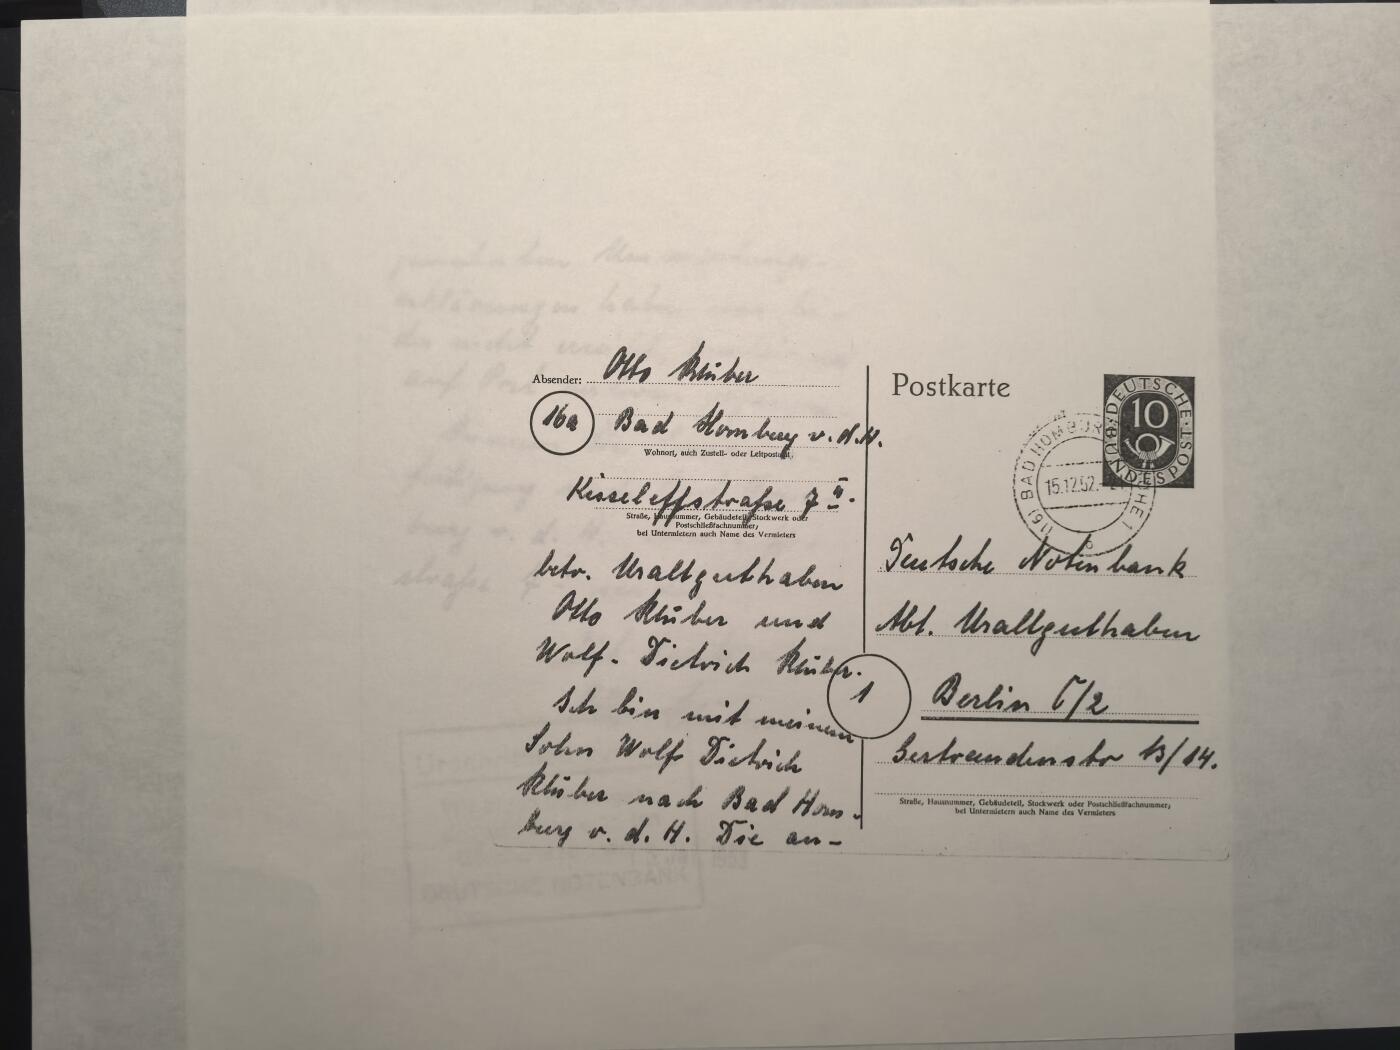 Absender: Otto Klüber
16a Bad Homburg v. d. H.
Wohnort, auch Zustell- oder Leitpostamt
Kisseleffstraße 7 II.
Straße, Hausnummer, Gebäudeteil, Stockwerk oder
Postschließfachnummer;
bei Untermietern auch Name des Vermieters
betr. Uraltguthaben
Otto Klüber und
Wolf-Dietrich Klüber.
Ich bin mit meinem
Sohn Wolf Dietrich
Klüber nach Bad Hom-
burg v. d. H. Die an-
Postkarte
DEUTSCHE BUNDESPOST
10
(16) BAD HOMBURG
15.12.52.
b
Deutsche Notenbank
Abt. Uraltguthaben
1
Berlin C/2
Gertraudenstr 13/14.
Straße, Hausnummer, Gebäudeteil, Stockwerk oder Postschließfachnummer;
bei Untermietern auch Name des Vermieters
DEUTSCHE NOTENBANK